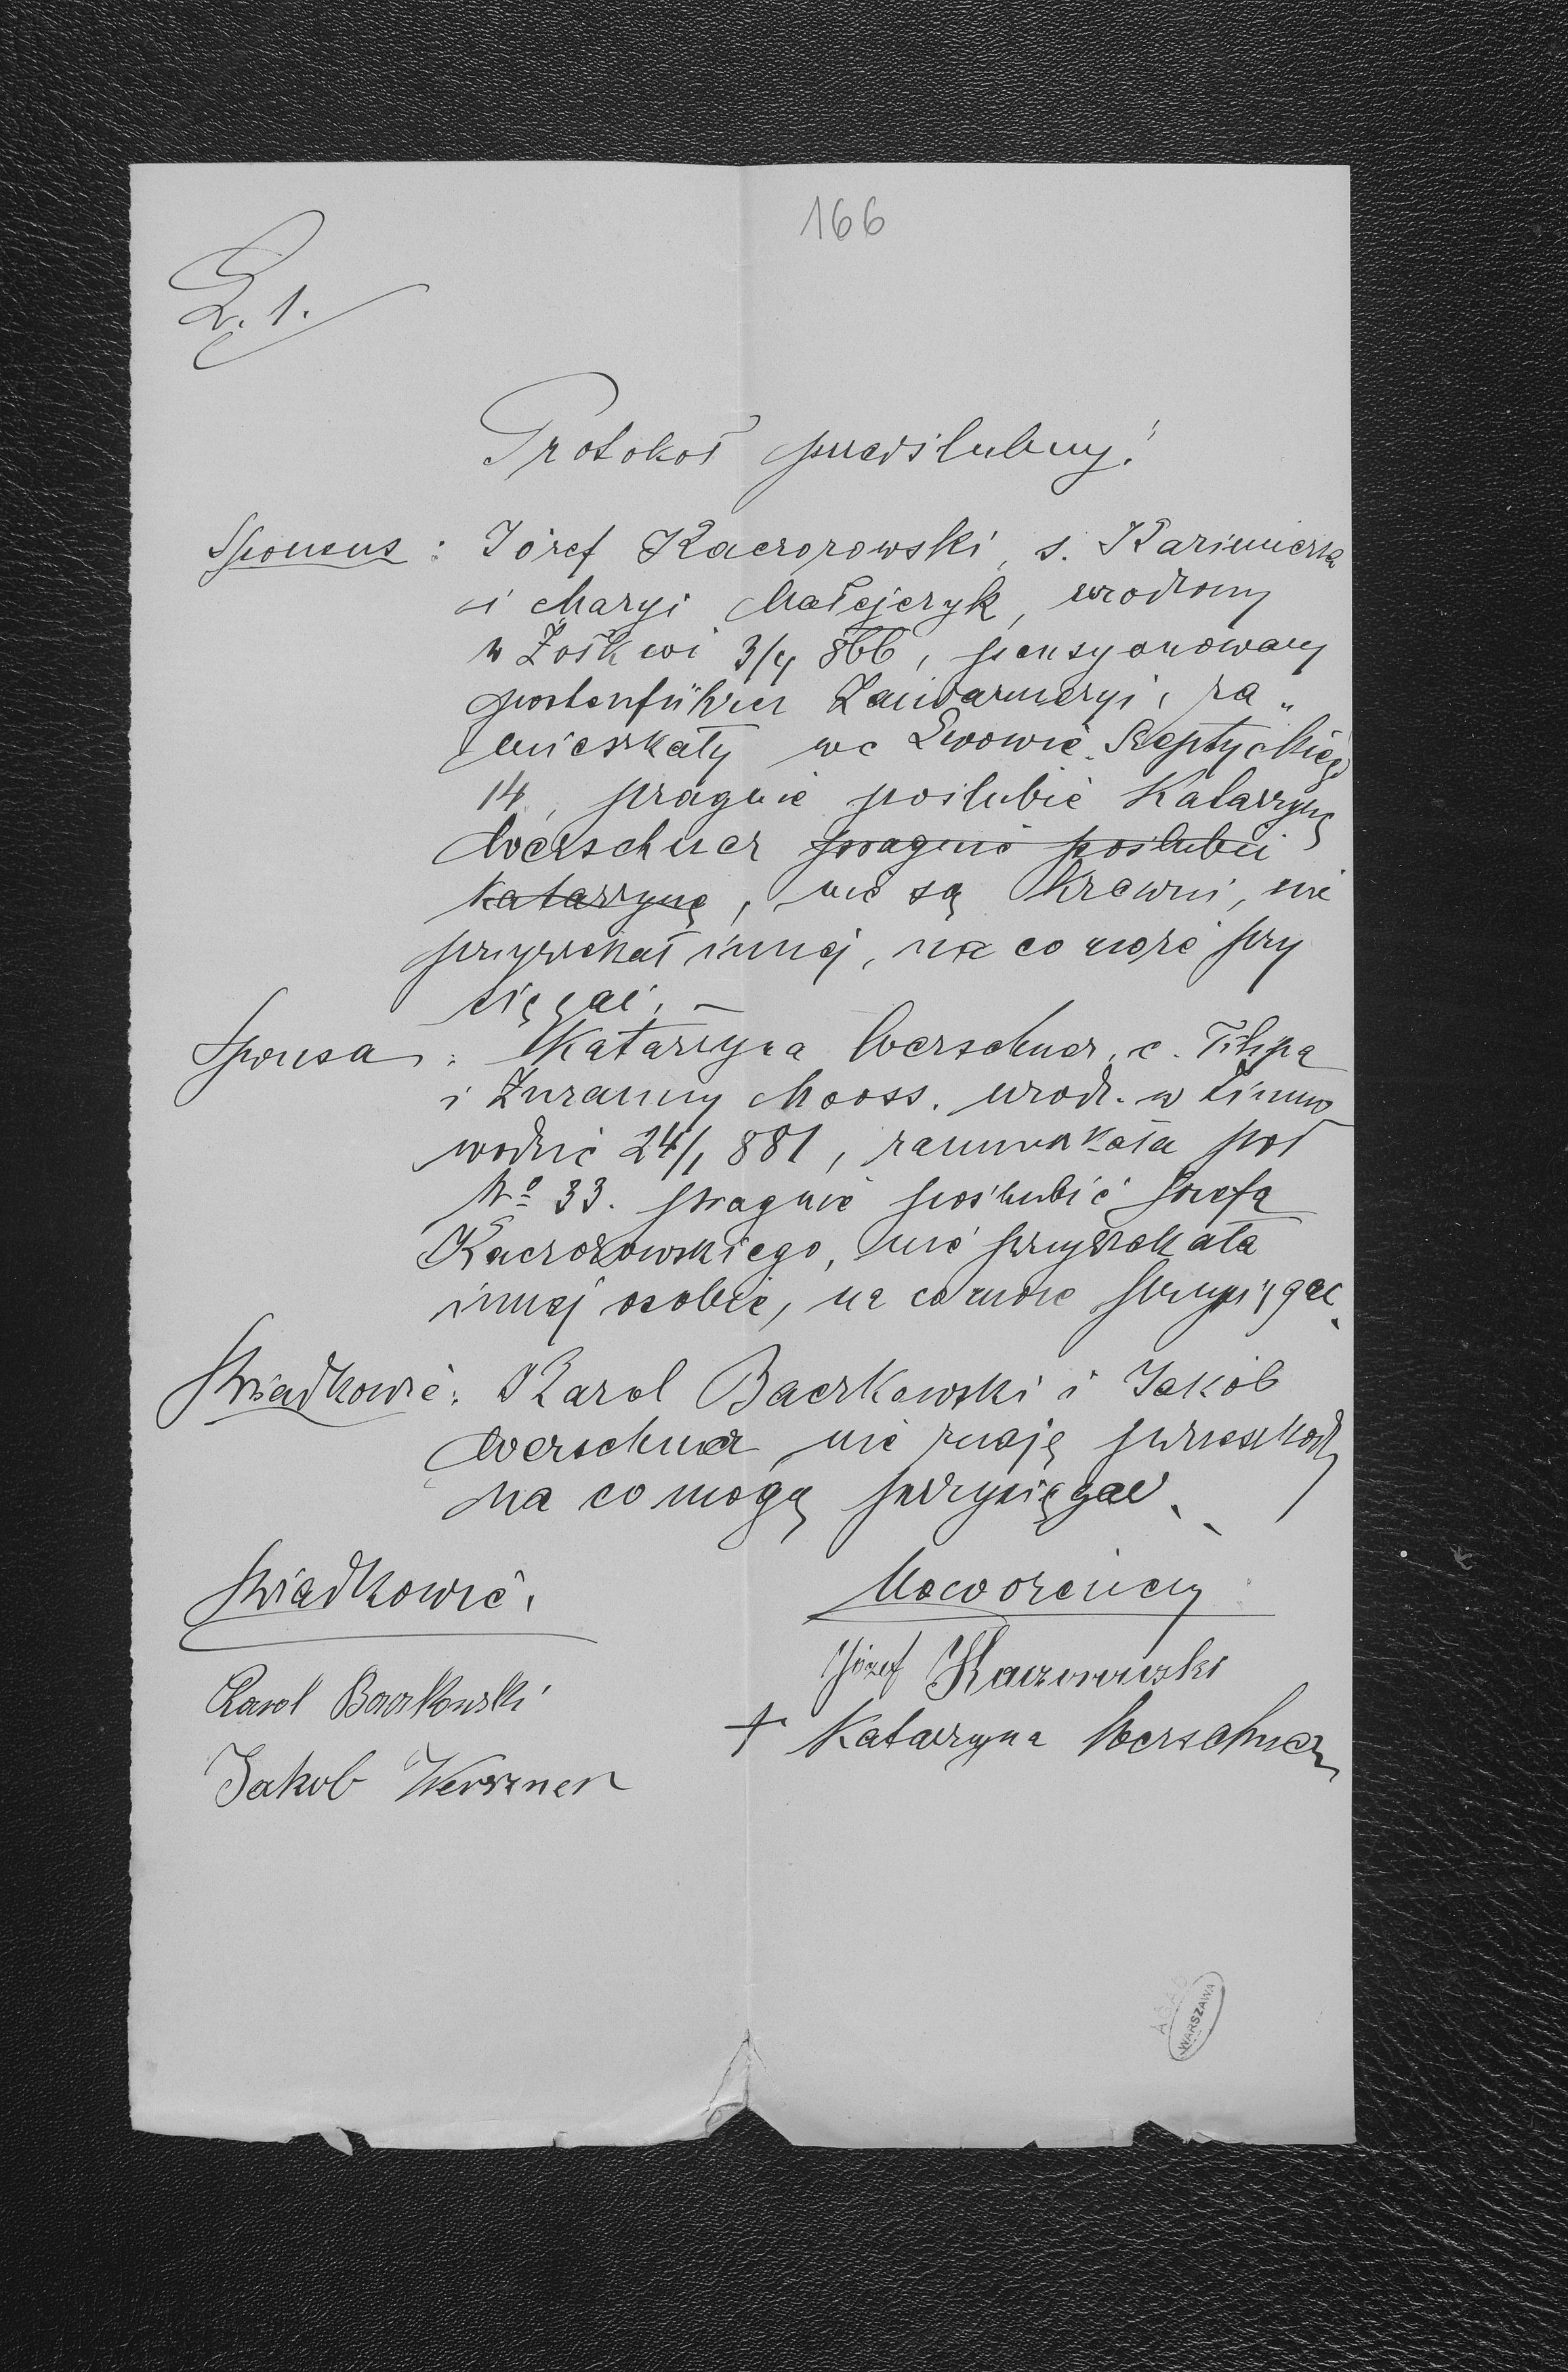 166
L. 1.
Protokoł przedślubny!
Sponsus: Józef Kaczorowski, s. Kazimierza
i Maryi Matejczyk, urodzony
w Żółkwi 3/4 866, pensyonowany
postenführer Żandarmeryi, za„
mieszkały we Lwowie, Szeptyckiego
14, pragnie poślubić Katarzynę
Werschner pragnie poślubić
Katarzynę, nie są krewni, nie
przyrzekał innej, na co może przy
sięgać. –
Sponsa: Katarzyna Werschner, c. Filipa
i Zuzanny Mooss. urodz. w Zimno
wodzie 24/1 881, zamieszkała pod
No 33. pragnie poślubić Józefa
Kaczorowskiego, nie przyrzekała
innej osobie, na co może przysięgać.
Świadkowie: Karol Baczkowski i Jakób
Werschner nie znają przeszkody
na co mogą przysięgać.
Świadkowie.
Nowożeńcy
Józef Kaczorowski
Karol Baczkowski
+ Katarzyna Werschner
Jakob Werszner
AGAD
WARSZAWA